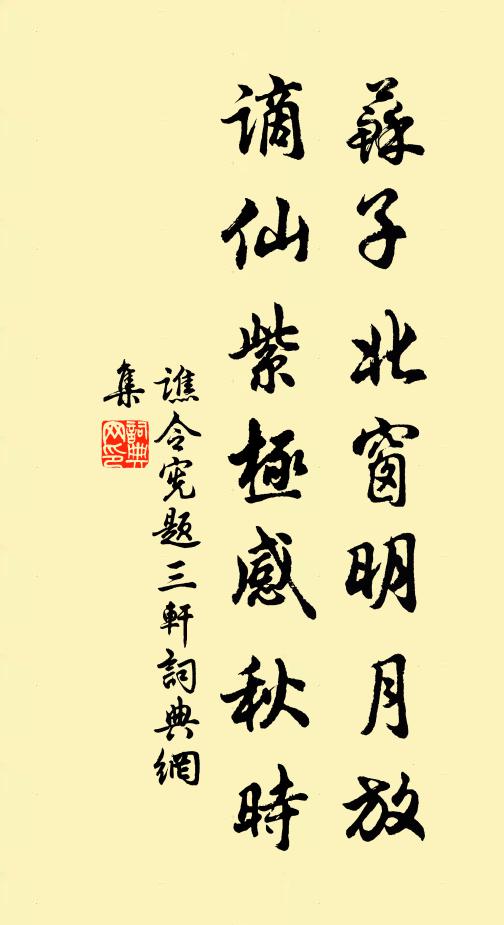 蘇子北窗明月放
謫仙紫極感秋時
譙令宪題三軒詞典網
集
詞典
网印